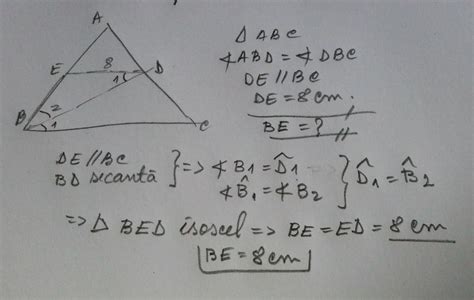 A
E 8 D
1
2
B 1 C
Δ ABC
∢ABD = ∢DBC
DE // BC
DE = 8 cm.
BE = ?
DE // BC
BD secantă } => ∢B1 = D̂1 =>
∢B̂1 = ∢B2 } D̂1 = B̂2
=> Δ BED isoscel => BE = ED = 8 cm
BE = 8 cm